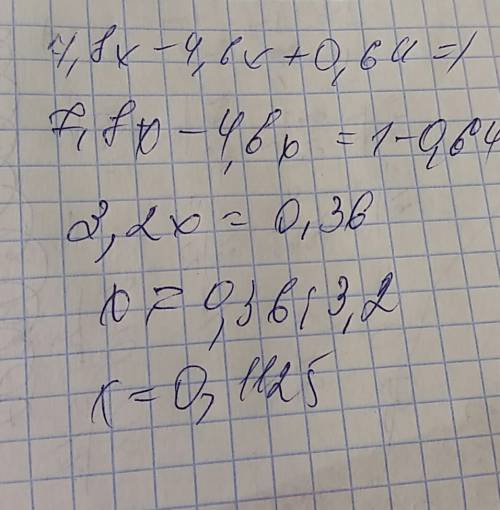 7,8x-4,6x+0,64=1
7,8x-4,6x=1-0,64
3,2x=0,36
x=0,36:3,2
x=0,1125